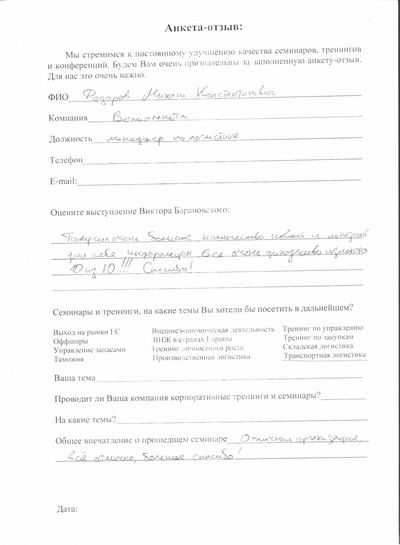 Анкета-отзыв:
Мы стремимся к постоянному улучшению качества семинаров, тренингов
и конференций. Будем Вам очень признательны за заполненную анкету-отзыв.
Для нас это очень важно.
ФИО Федоров Михаил Константинович
Компания Велопланета
Должность менеджер по логистике
Телефон
E-mail:
Оцените выступление Виктора Барановского:
Получил очень большое количество новой и полезной
для себя информации. Все очень доходчиво
10 из 10!!! Спасибо!
Семинары и тренинги, на какие темы Вы хотели бы посетить в дальнейшем?
Выход на рынки ЕС Внешнеэкономическая деятельность Тренинг по управлению
Оффшоры ВНЖ в странах Европы Тренинг по закупкам
Управление запасами Тренинг личностного роста Складская логистика
Таможня Производственная логистика Транспортная логистика
Ваша тема
Проводит ли Ваша компания корпоративные тренинги и семинары?
На какие темы?
Общее впечатление о прошедшем семинаре Отличная организация,
всё отлично, большое спасибо!
Дата: